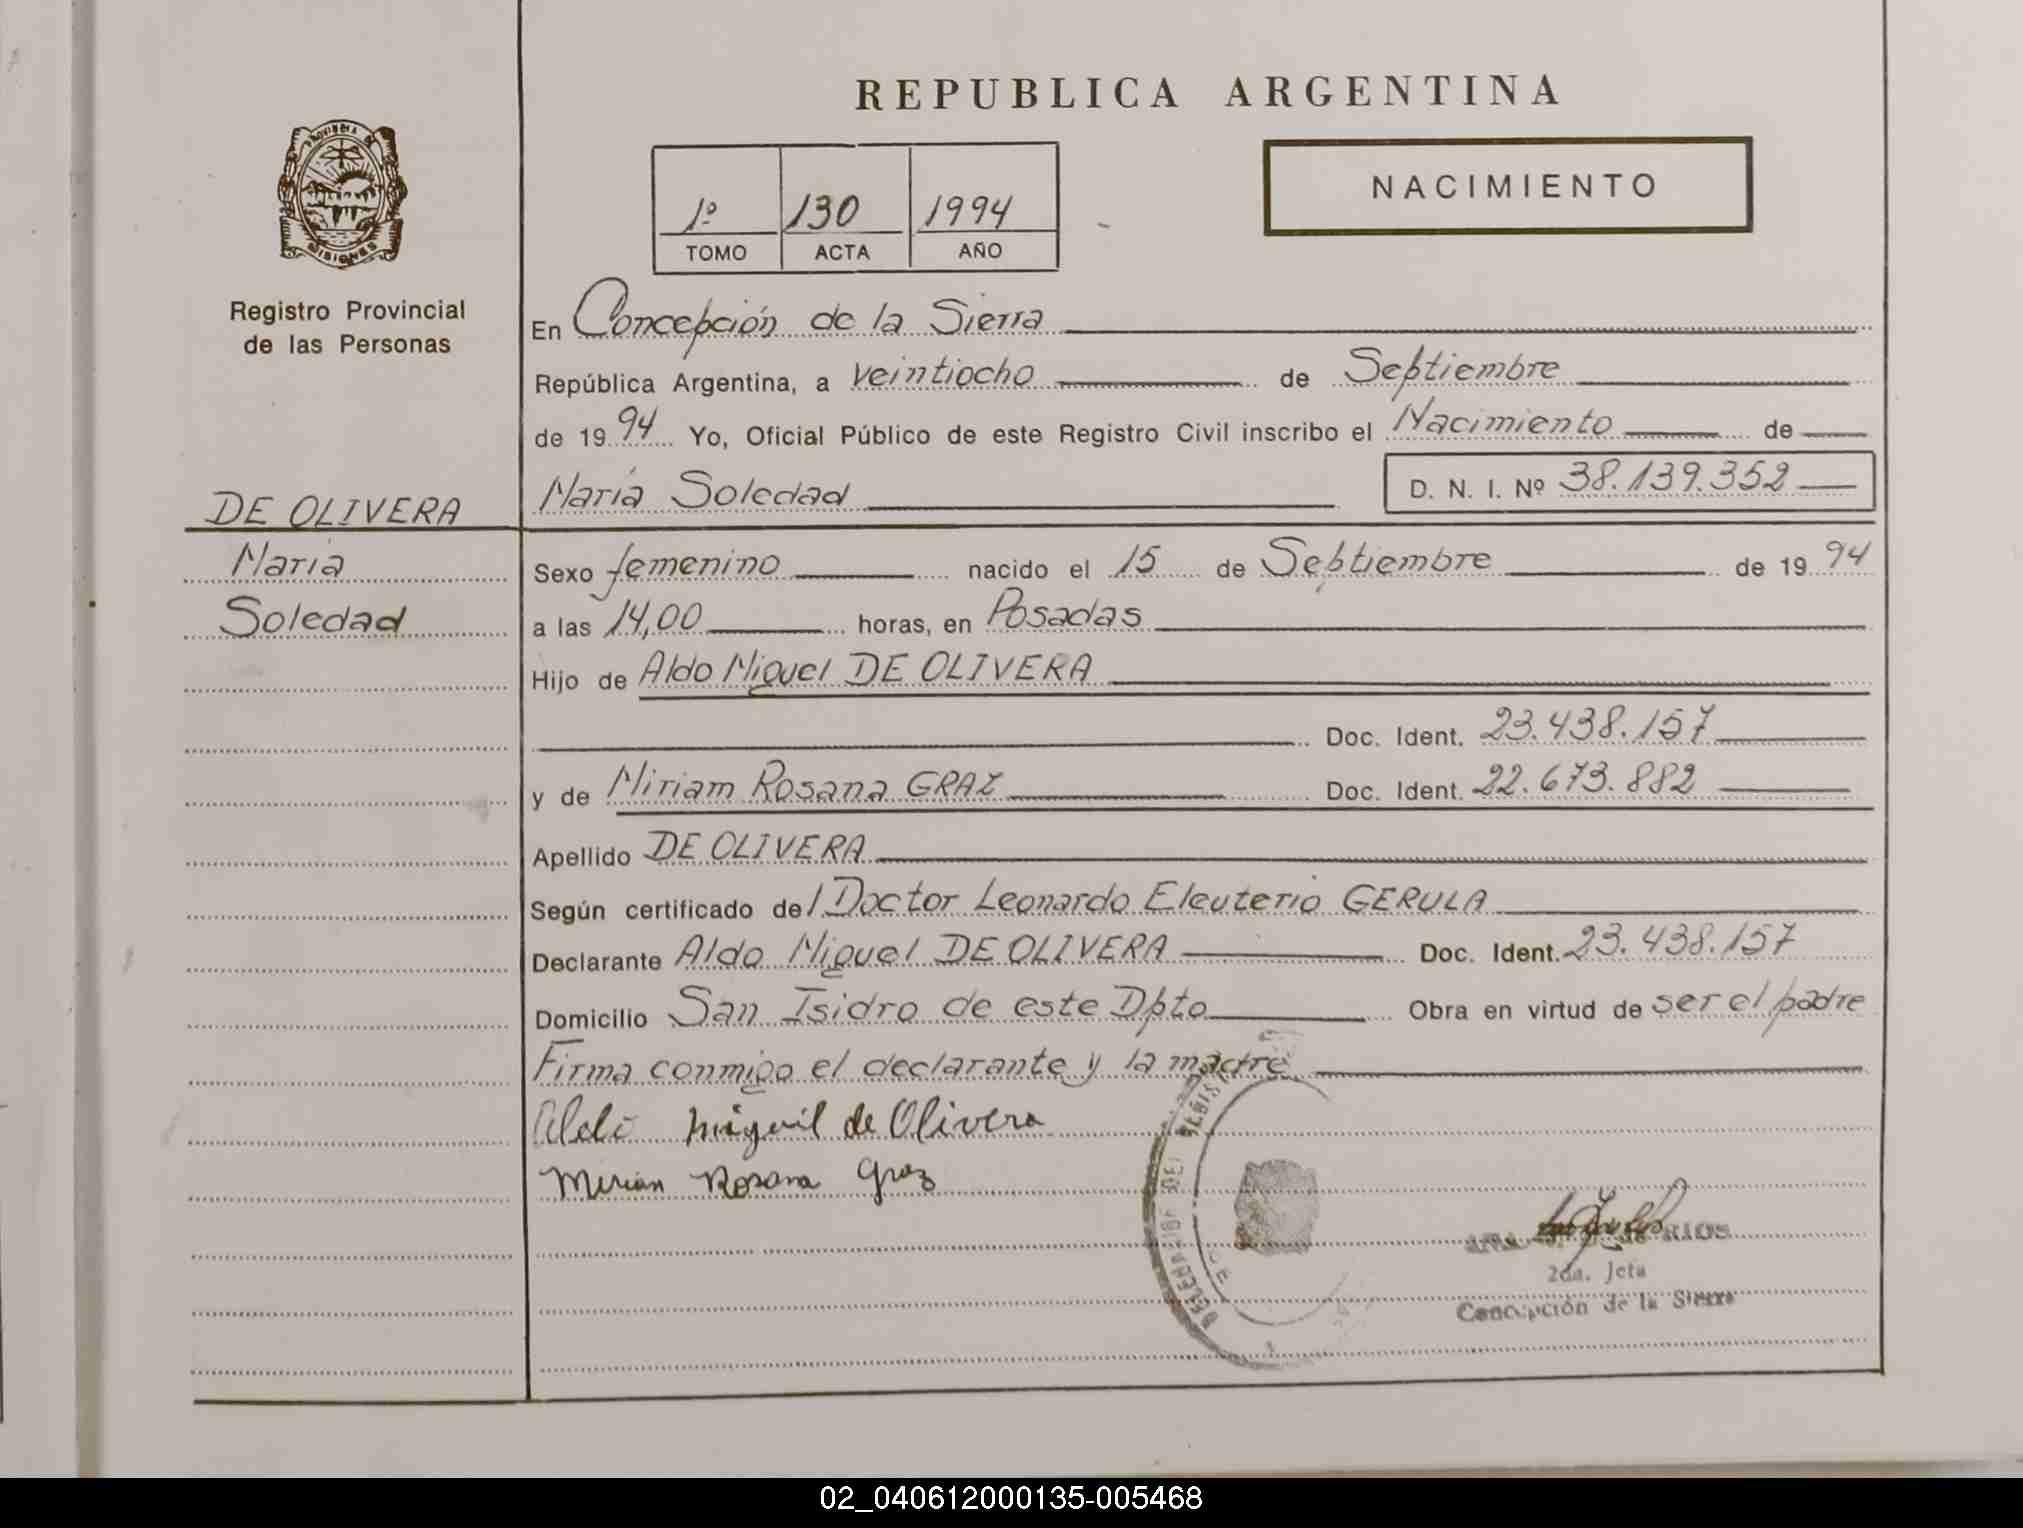 REPUBLICA ARGENTINA
PROVINCIA DE MISIONES
Registro Provincial
de las Personas
1º 130 1994
TOMO ACTA AÑO
NACIMIENTO
En Concepción de la Sierra
República Argentina, a veintiocho de Septiembre
de 1994 Yo, Oficial Público de este Registro Civil inscribo el Nacimiento de
María Soledad D. N. I. Nº 38.139.352
DE OLIVERA
María
Soledad
Sexo femenino nacido el 15 de Septiembre de 1994
a las 14,00 horas, en Posadas
Hijo de Aldo Miguel DE OLIVERA
Doc. Ident. 23.438.157
y de Miriam Rosana GRAZ Doc. Ident. 22.673.882
Apellido DE OLIVERA
Según certificado del Doctor Leonardo Eleuterio GERULA
Declarante Aldo Miguel DE OLIVERA Doc. Ident. 23.438.157
Domicilio San Isidro de este Dpto Obra en virtud de ser el padre
Firma conmigo el declarante y la madre
Aldo Miguel de Olivera
Mirian Rosana Graz
DEL REGIS
RIOS
2da. Jefa
Concepción de la Sierra
02_040612000135-005468